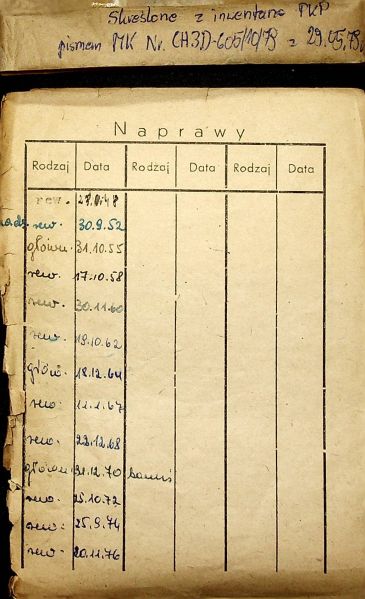 Skreślone z inwentarza PKP
pismem MK Nr. CH3D-605/10/79 z 29.05.79r
Naprawy
Rodzaj Data Rodzaj Data Rodzaj Data
rew. 48
rew. 30.9.52
główn. 31.10.55
rew. 17.10.58
rew. 30.11.60
rew. 19.10.62
główn. 18.12.64
rew. 11.1.67
rew. 22.12.68
główn. 31.12.70
rew. 25.10.72
rew. 25.9.74
rew. 20.11.76